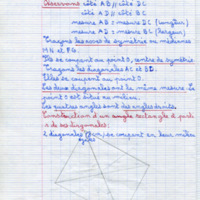 Observons côté AB // côté DC
côté AD // côté BC
mesure AB = mesure DC (longueur)
mesure AD = mesure BC (largeur)
Traçons les axes de symétrie ou médianes
MN et PQ.
Ils se coupent au point O, centre de symétrie.
Traçons les diagonales AC et BD.
Elles se coupent au point O.
Les deux diagonales ont la même mesure. Le
point O est situé au milieu.
Les quatre angles sont des angles droits.
Construction d'un rectangle à parti
r de ses diagonales:
2 diagonales se coupent en leur milieu